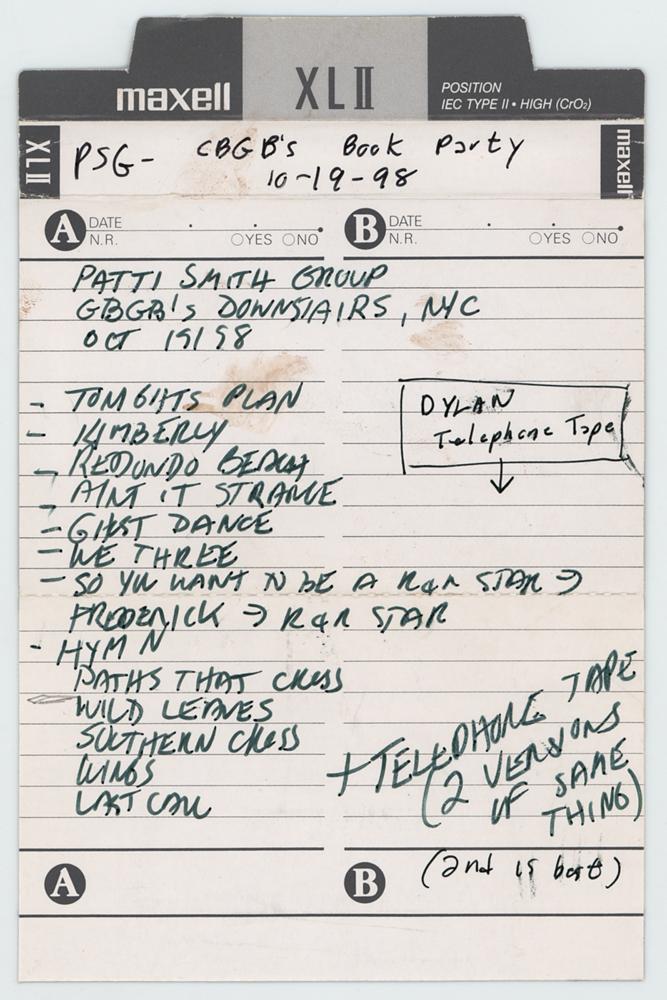 maxell
XLII
POSITION
IEC TYPE II • HIGH (CrO₂)
XLII
PSG- CBGB's Book Party
10-19-98
maxell
A DATE
N.R. YES NO
B DATE
N.R. YES NO
PATTI SMITH GROUP
GBGB's DOWNSTAIRS, NYC
OCT 19/98
- TONIGHTS PLAN
- KIMBERLY
- REDONDO BEACH
- AINT IT STRANGE
- GHOST DANCE
- WE THREE
- SO YOU WANT TO BE A R&R STAR →
FREDERICK → R&R STAR
- HYMN
PATHS THAT CROSS
WILD LEAVES
SOUTHERN CROSS
WINGS
LAST CALL
DYLAN
Telephone Tape
↓
+ TELEPHONE TAPE
(2 VERSIONS
OF SAME
THING)
(2nd is best)
A
B